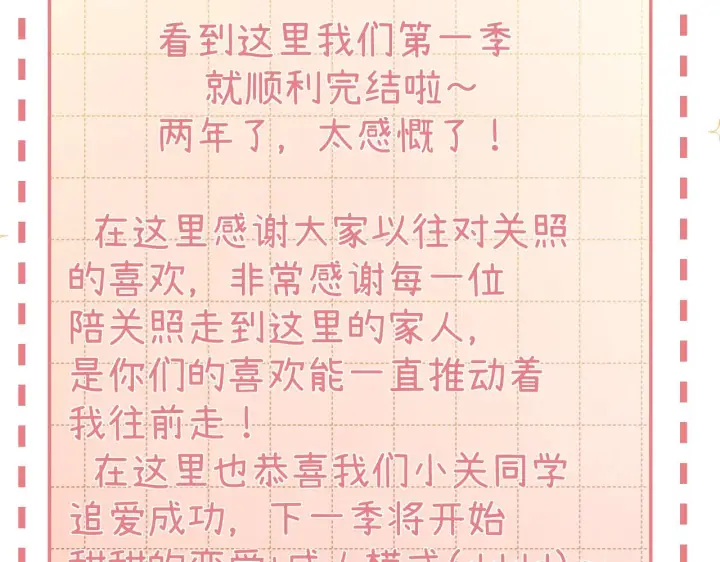 看到这里我们第一季
就顺利完结啦～
两年了，太感慨了！
在这里感谢大家以往对关照
的喜欢，非常感谢每一位
陪关照走到这里的家人，
是你们的喜欢能一直推动着
我往前走！
在这里也恭喜我们小关同学
追爱成功，下一季将开始
甜甜的恋爱+成人模式(